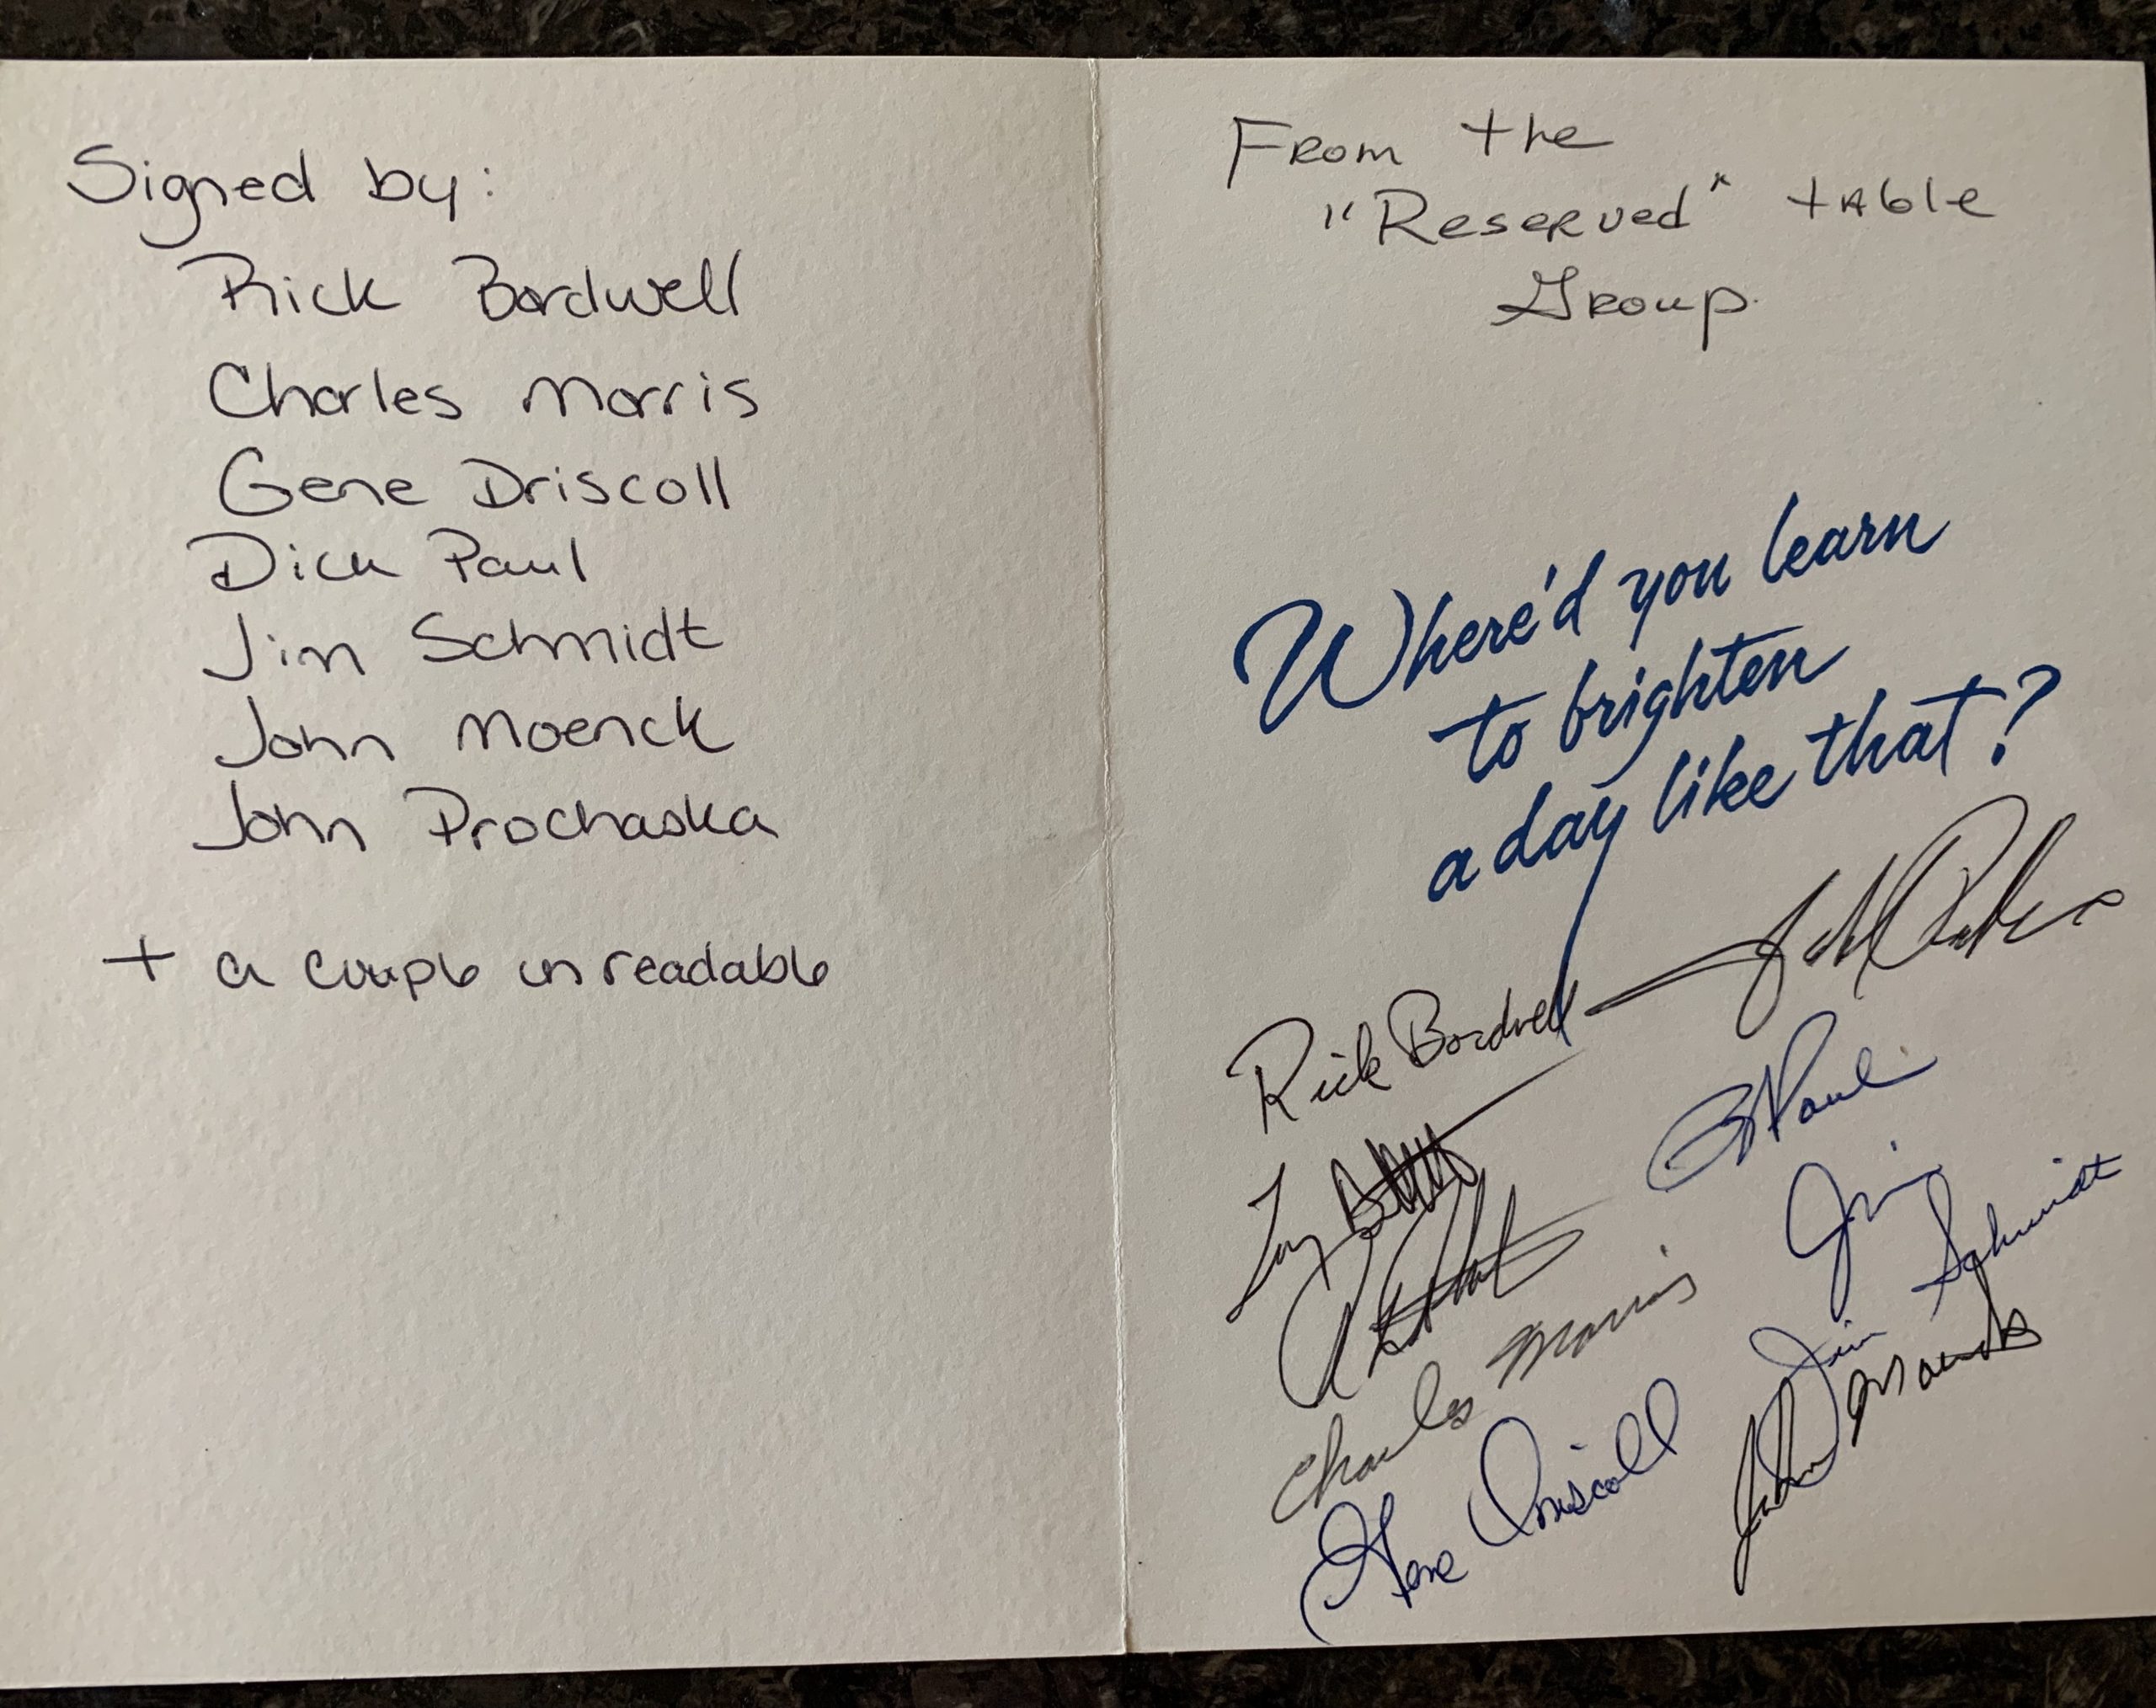 Signed by:
Rick Bordwell
Charles Morris
Gene Driscoll
Dick Paul
Jim Schmidt
John Moenck
John Prochaska
+ a couple unreadable
From the
"Reserved" table
Group.
Where'd you learn
to brighten
a day like that?
Rick Bordwell
Paul
Jim
Schmidt
Charles Morris
Jim
Gene Driscoll
John Moenck